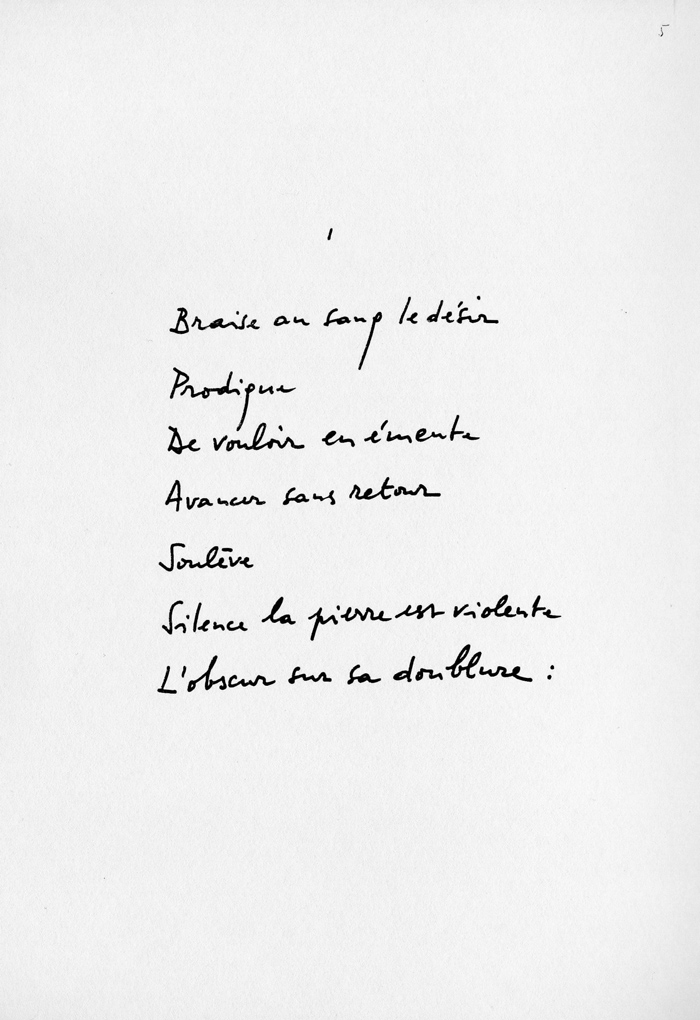 5
1
Braise au sang le désir
Prodigue
De vouloir en émeute
Avancer sans retour
Soulève
Silence la pierre est violente
L'obscur sur sa doublure :